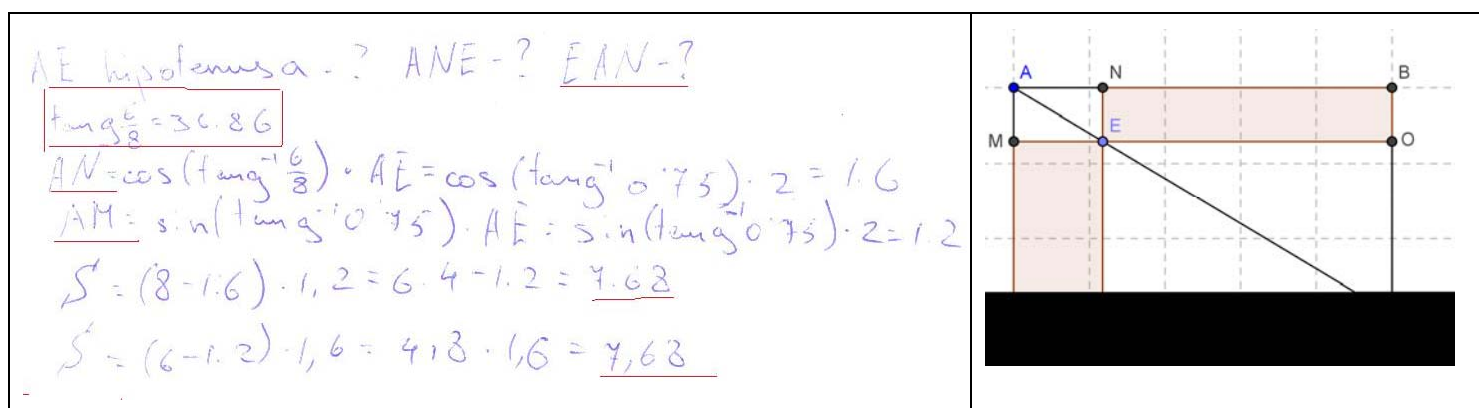 AE hipotenusa - ? ANE - ? EAN - ?
tang 6/8 = 36.86
AN = cos(tang⁻¹ 6/8) · AE = cos(tang⁻¹ 0'75) · 2 = 1.6
AM = sin(tang⁻¹ 0'75) · AE = sin(tang⁻¹ 0'75) · 2 = 1.2
S = (8 - 1.6) · 1,2 = 6.4 - 1.2 = 7.68
S = (6 - 1.2) · 1,6 = 4,8 · 1,6 = 7,68
A N B
M E O